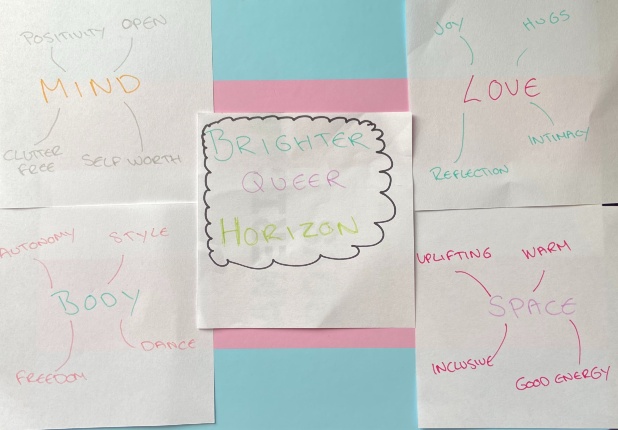 POSITIVITY OPEN
MIND
CLUTTER
FREE
SELF WORTH
JOY HUGS
LOVE
INTIMACY
REFLECTION
BRIGHTER
QUEER
HORIZON
AUTONOMY STYLE
BODY
DANCE
FREEDOM
UPLIFTING WARM
SPACE
INCLUSIVE
GOOD ENERGY